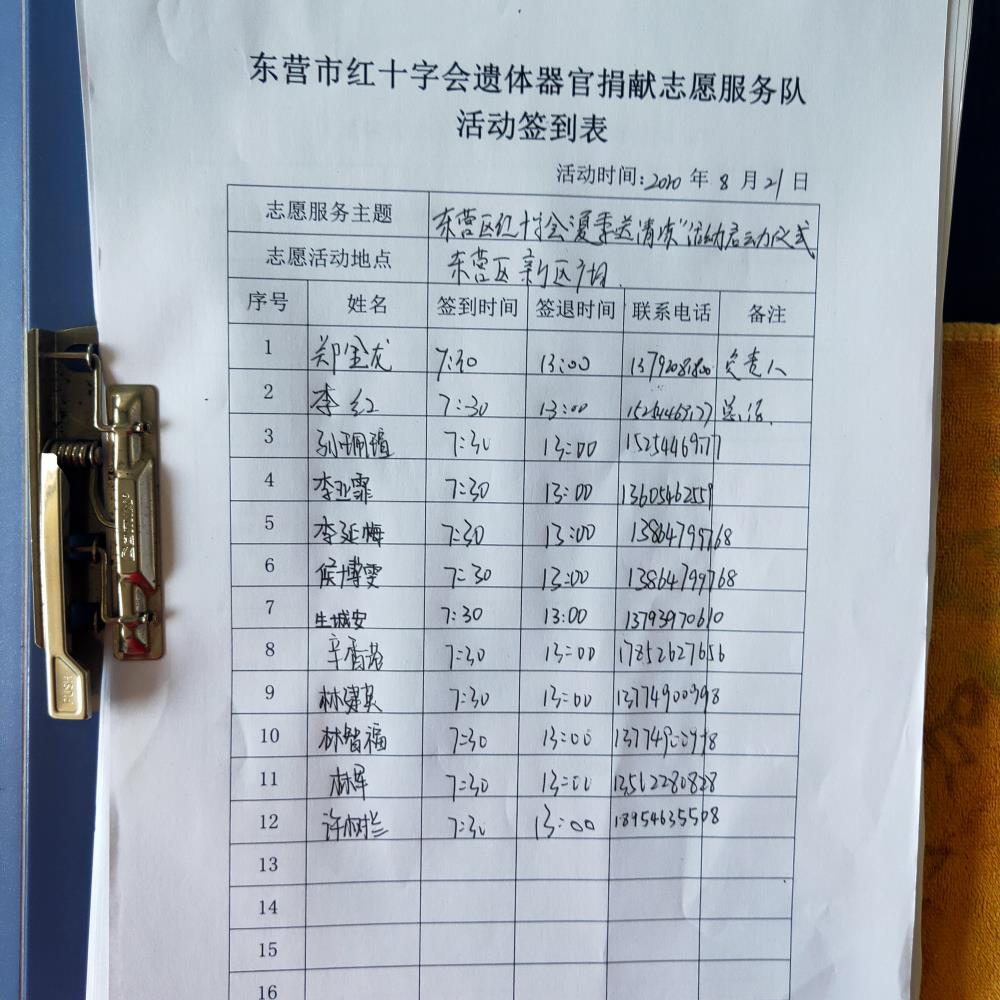 东营市红十字会遗体器官捐献志愿服务队
活动签到表
活动时间:2020 年 8 月 21 日
志愿服务主题 东营区红十字会"夏季送清凉"活动启动仪式
志愿活动地点 东营区新区广场.
序号 姓名 签到时间 签退时间 联系电话 备注
1 郑金龙 7:30 13:00 13792081800 负责人
2 李红 7:30 13:00
3 孙珮瑄 7:30 13:00 15254469777
4 李亚霏 7:30 13:00 13605462559
5 李延梅 7:30 13:00 13864799768
6 候博雯 7:30 13:00 13864799768
7 生城安 7:30 13:00 13793970610
8 辛香 7:30 13:00 17852627656
9 林建英 7:30 13:00 13774900398
10 林智福 7:30 13:00
11 林军 7:30 13:00 13562280828
12 许树兰 7:30 13:00 18954635508
13
14
15
16
PUSH